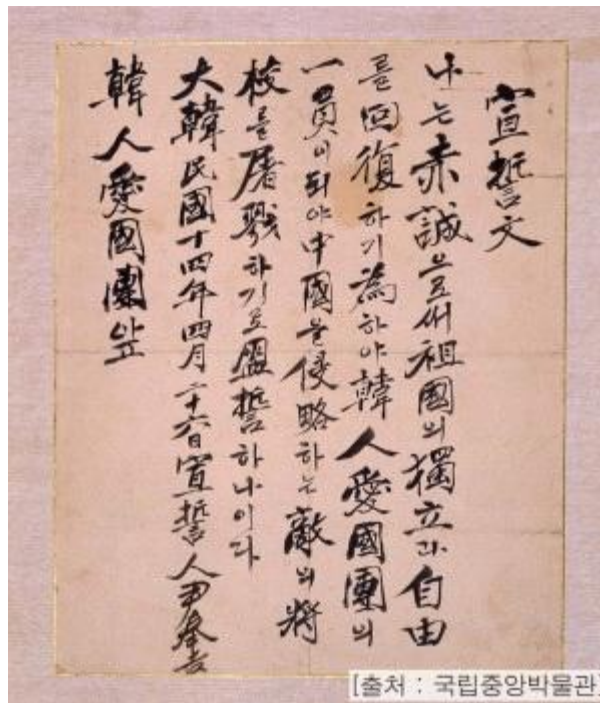 宣誓文
나는赤誠으로써祖國의獨立과自由
를回復하기爲하야韓人愛國團의
一員이되야中國을侵略하는敵의將
校를屠戮하기로盟誓하나이다
大韓民國十四年四月二十六日宣誓人尹奉吉
韓人愛國團앞
[출처 : 국립중앙박물관]